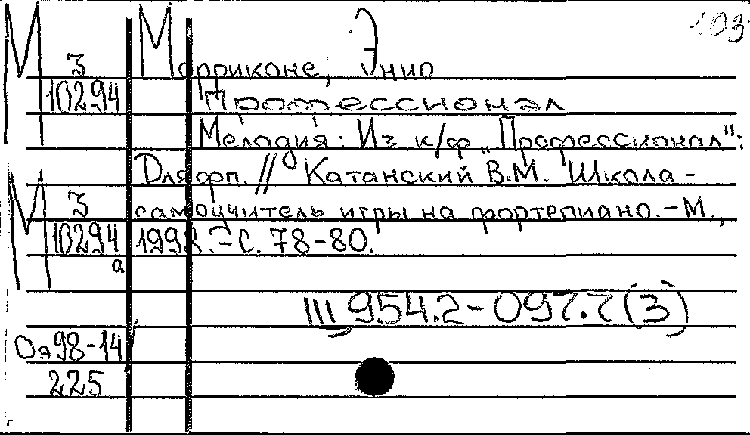 М Морриконе, Э 103
З Энио
10294 Профессионал
Мелодия: Из к/ф „Профессионал":
Для фп. // Катанский В.М. Школа-
М З самоучитель игры на фортепиано. – М.,
10294 – С. 78-80.
а
III 954.2-097.7(3)
Оя 98-14/
225